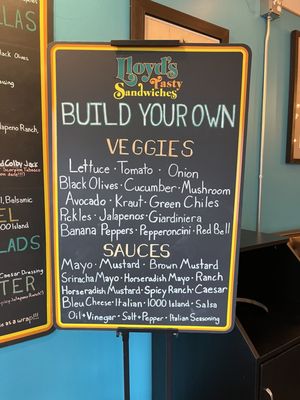 LAS
Black Olives
Jalapeno Ranch,
Colby Jack
Scorpion Tabasco
, Balsamic
EL
1000 Island
LADS
Caesar Dressing
TER
as a wrap!!!
Lloyd's
Tasty
Sandwiches
BUILD YOUR OWN
VEGGIES
Lettuce · Tomato · Onion
Black Olives · Cucumber · Mushroom
Avocado · Kraut · Green Chiles
Pickles · Jalapenos · Giardiniera
Banana Peppers · Pepperoncini · Red Bell
SAUCES
Mayo · Mustard · Brown Mustard
Sriracha Mayo · Horseradish Mayo · Ranch
Horseradish Mustard · Spicy Ranch · Caesar
Bleu Cheese · Italian · 1000 Island · Salsa
Oil + Vinegar · Salt + Pepper · Italian Seasoning